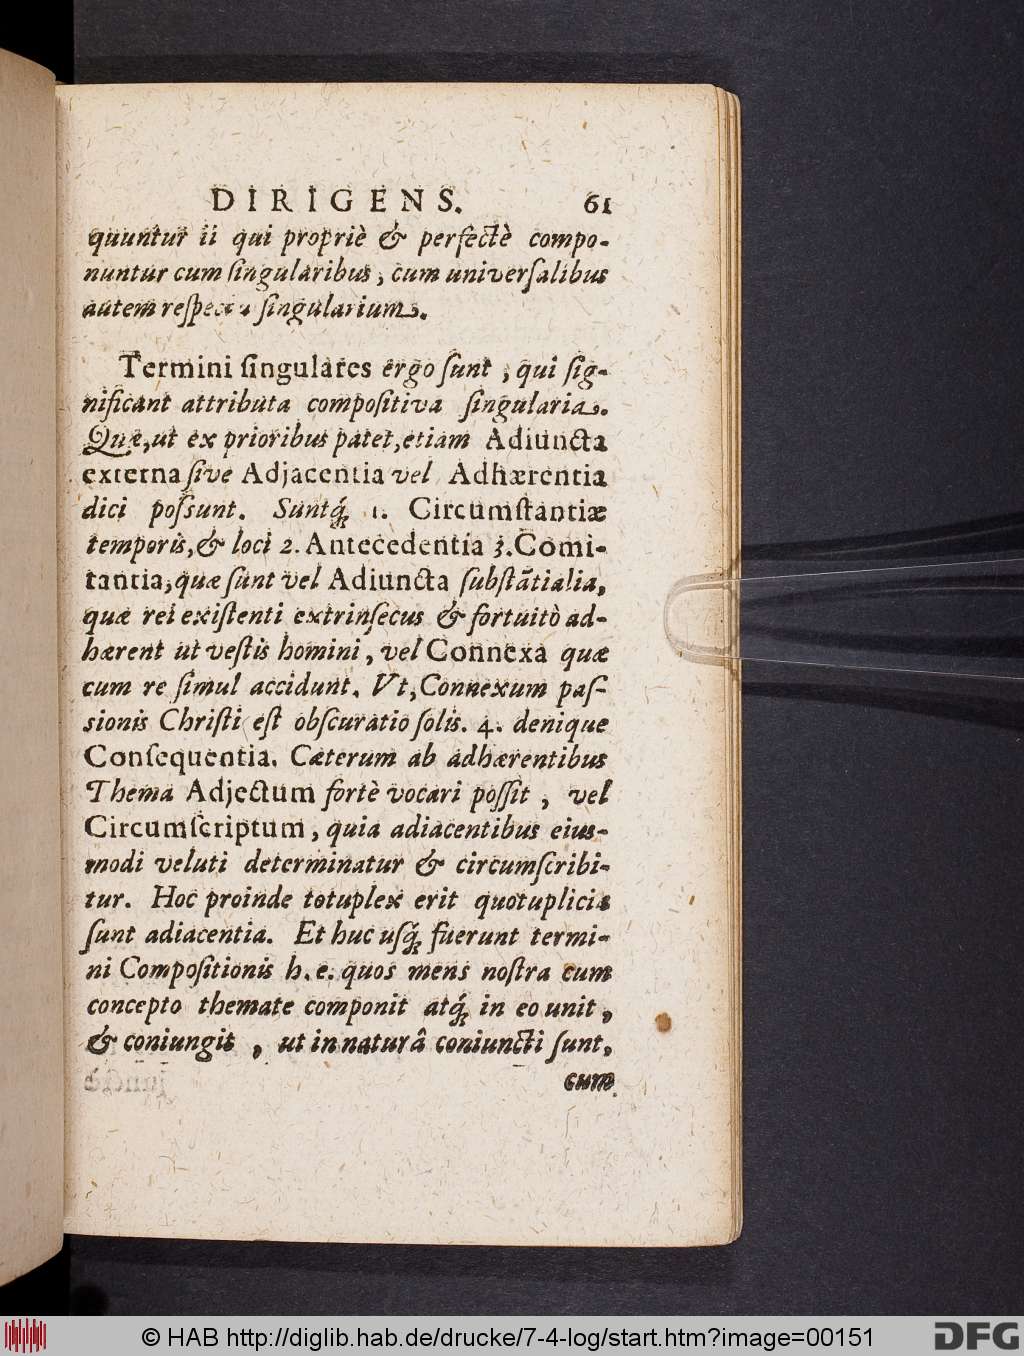 DIRIGENS. 61
quuntur ii qui propriè & perfectè compo-
nuntur cum ſingularibus, cum univerſalibus
autem reſpectu ſingularium.
Termini ſingulares ergo ſunt, qui ſig-
nificant attributa compoſitiva ſingularia.
Quæ, ut ex prioribus patet, etiam Adiuncta
externa ſive Adjacentia vel Adhærentia
dici poſsunt. Suntq́; 1. Circumſtantiæ
temporis, & loci 2. Antecedentia 3. Comi-
tantia, quæ ſunt vel Adiuncta ſubſtãtialia,
quæ rei exiſtenti extrinſecus & fortuitò ad-
hærent ut veſtis homini, vel Connexa quæ
cum re ſimul accidunt. Vt, Connexum paſ-
sionis Chriſti eſt obſcuratio ſolis. 4. denique
Conſequentia. Cæterum ab adhærentibus
Thema Adjectum fortè vocari poſſit, vel
Circumſcriptum, quia adiacentibus eius-
modi veluti determinatur & circumſcribi-
tur. Hoc proinde totuplex erit quotuplicia
ſunt adiacentia. Et huc uſq́; fuerunt termi-
ni Compoſitionis h. e. quos mens noſtra cum
concepto themate componit atq́; in eo unit,
& coniungit, ut in naturâ coniuncti ſunt,
cum
© HAB http://diglib.hab.de/drucke/7-4-log/start.htm?image=00151
DFG